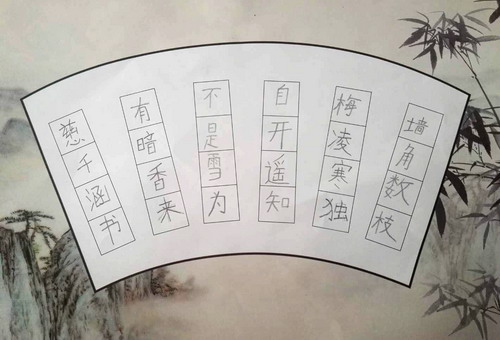 墙角数枝
梅凌寒独
自开遥知
不是雪为
有暗香来
慈千涵书